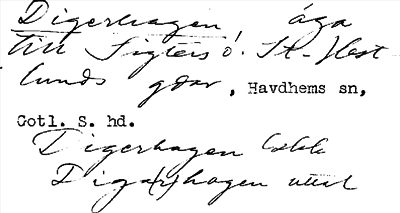 Digerhagen, äga
till Sigters o. St-Hest
lunds gdar, Havdhems sn,
Gotl. S. hd.
Digerhagen
Dige(r)hagen uttal